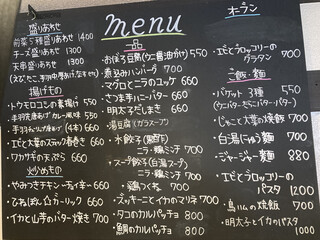 menu
盛りあわせ
前菜5種盛りあわせ 1400
チーズ盛りあわせ 1300
天串盛りあわせ 1300
揚げもの
トウモロコシの素揚げ 550
カレー風味 550
660
エビと大葉のスティック春巻 660
ワカサギの天ぷら 660
炒めもの
やみつきチキン 660
ガーリック 660
イカと山芋のバター焼き 700
一品
おぼろ豆腐(ウニ醤油かけ) 550
煮込みハンバーグ 700
マグロとニラのユッケ 660
さつま芋ハニーバター 660
明太子だし巻き 660
湯豆腐
水餃子
ニラ・鶏ミンチ 700
スープ餃子(白湯スープ)
ニラ・鶏ミンチ 700
鶏つくね 700
ズッキーニとイカのマリネ 700
タコのカルパッチョ 800
鯛のカルパッチョ 800
オーブン
エビとブロッコリーの
グラタン 700
ご飯・麺
バケット 3種 550
じゃこと大葉の焼飯 700
白湯にゅう麺 700
ジャージャー麺 880
エビとブロッコリーの
パスタ 1200
の焼飯 700
明太子とイカのパスタ
1000